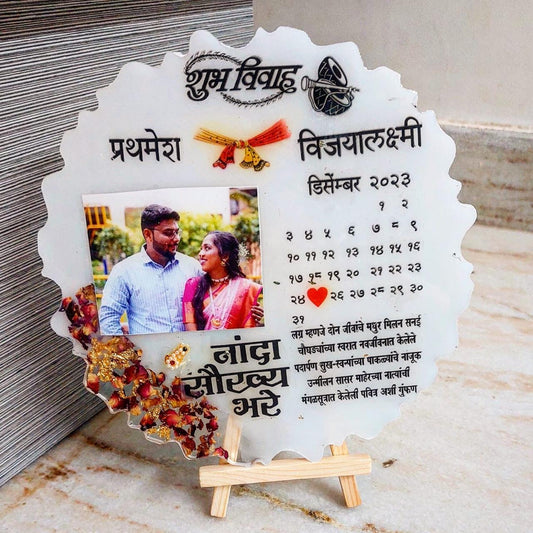 शुभ विवाह
प्रथमेश विजयालक्ष्मी
डिसेंबर २०२३
१ २
३ ४ ५ ६ ७ ८ ९
१० ११ १२ १३ १४ १५ १६
१७ १८ १९ २० २१ २२ २३
२४ २६ २७ २८ २९ ३०
३१
लग्न म्हणजे दोन जीवांचे मधुर मिलन सनई
चौघड्यांच्या स्वरात नवजीवनात केलेले
पदार्पण सुख-स्वप्नांच्या पाकळ्यांचे नाजूक
उन्मीलन सासर माहेरच्या नात्यांची
मंगळसूत्रात केलेली पवित्र अशी गुंफण
नांदा
सौख्य
भरे